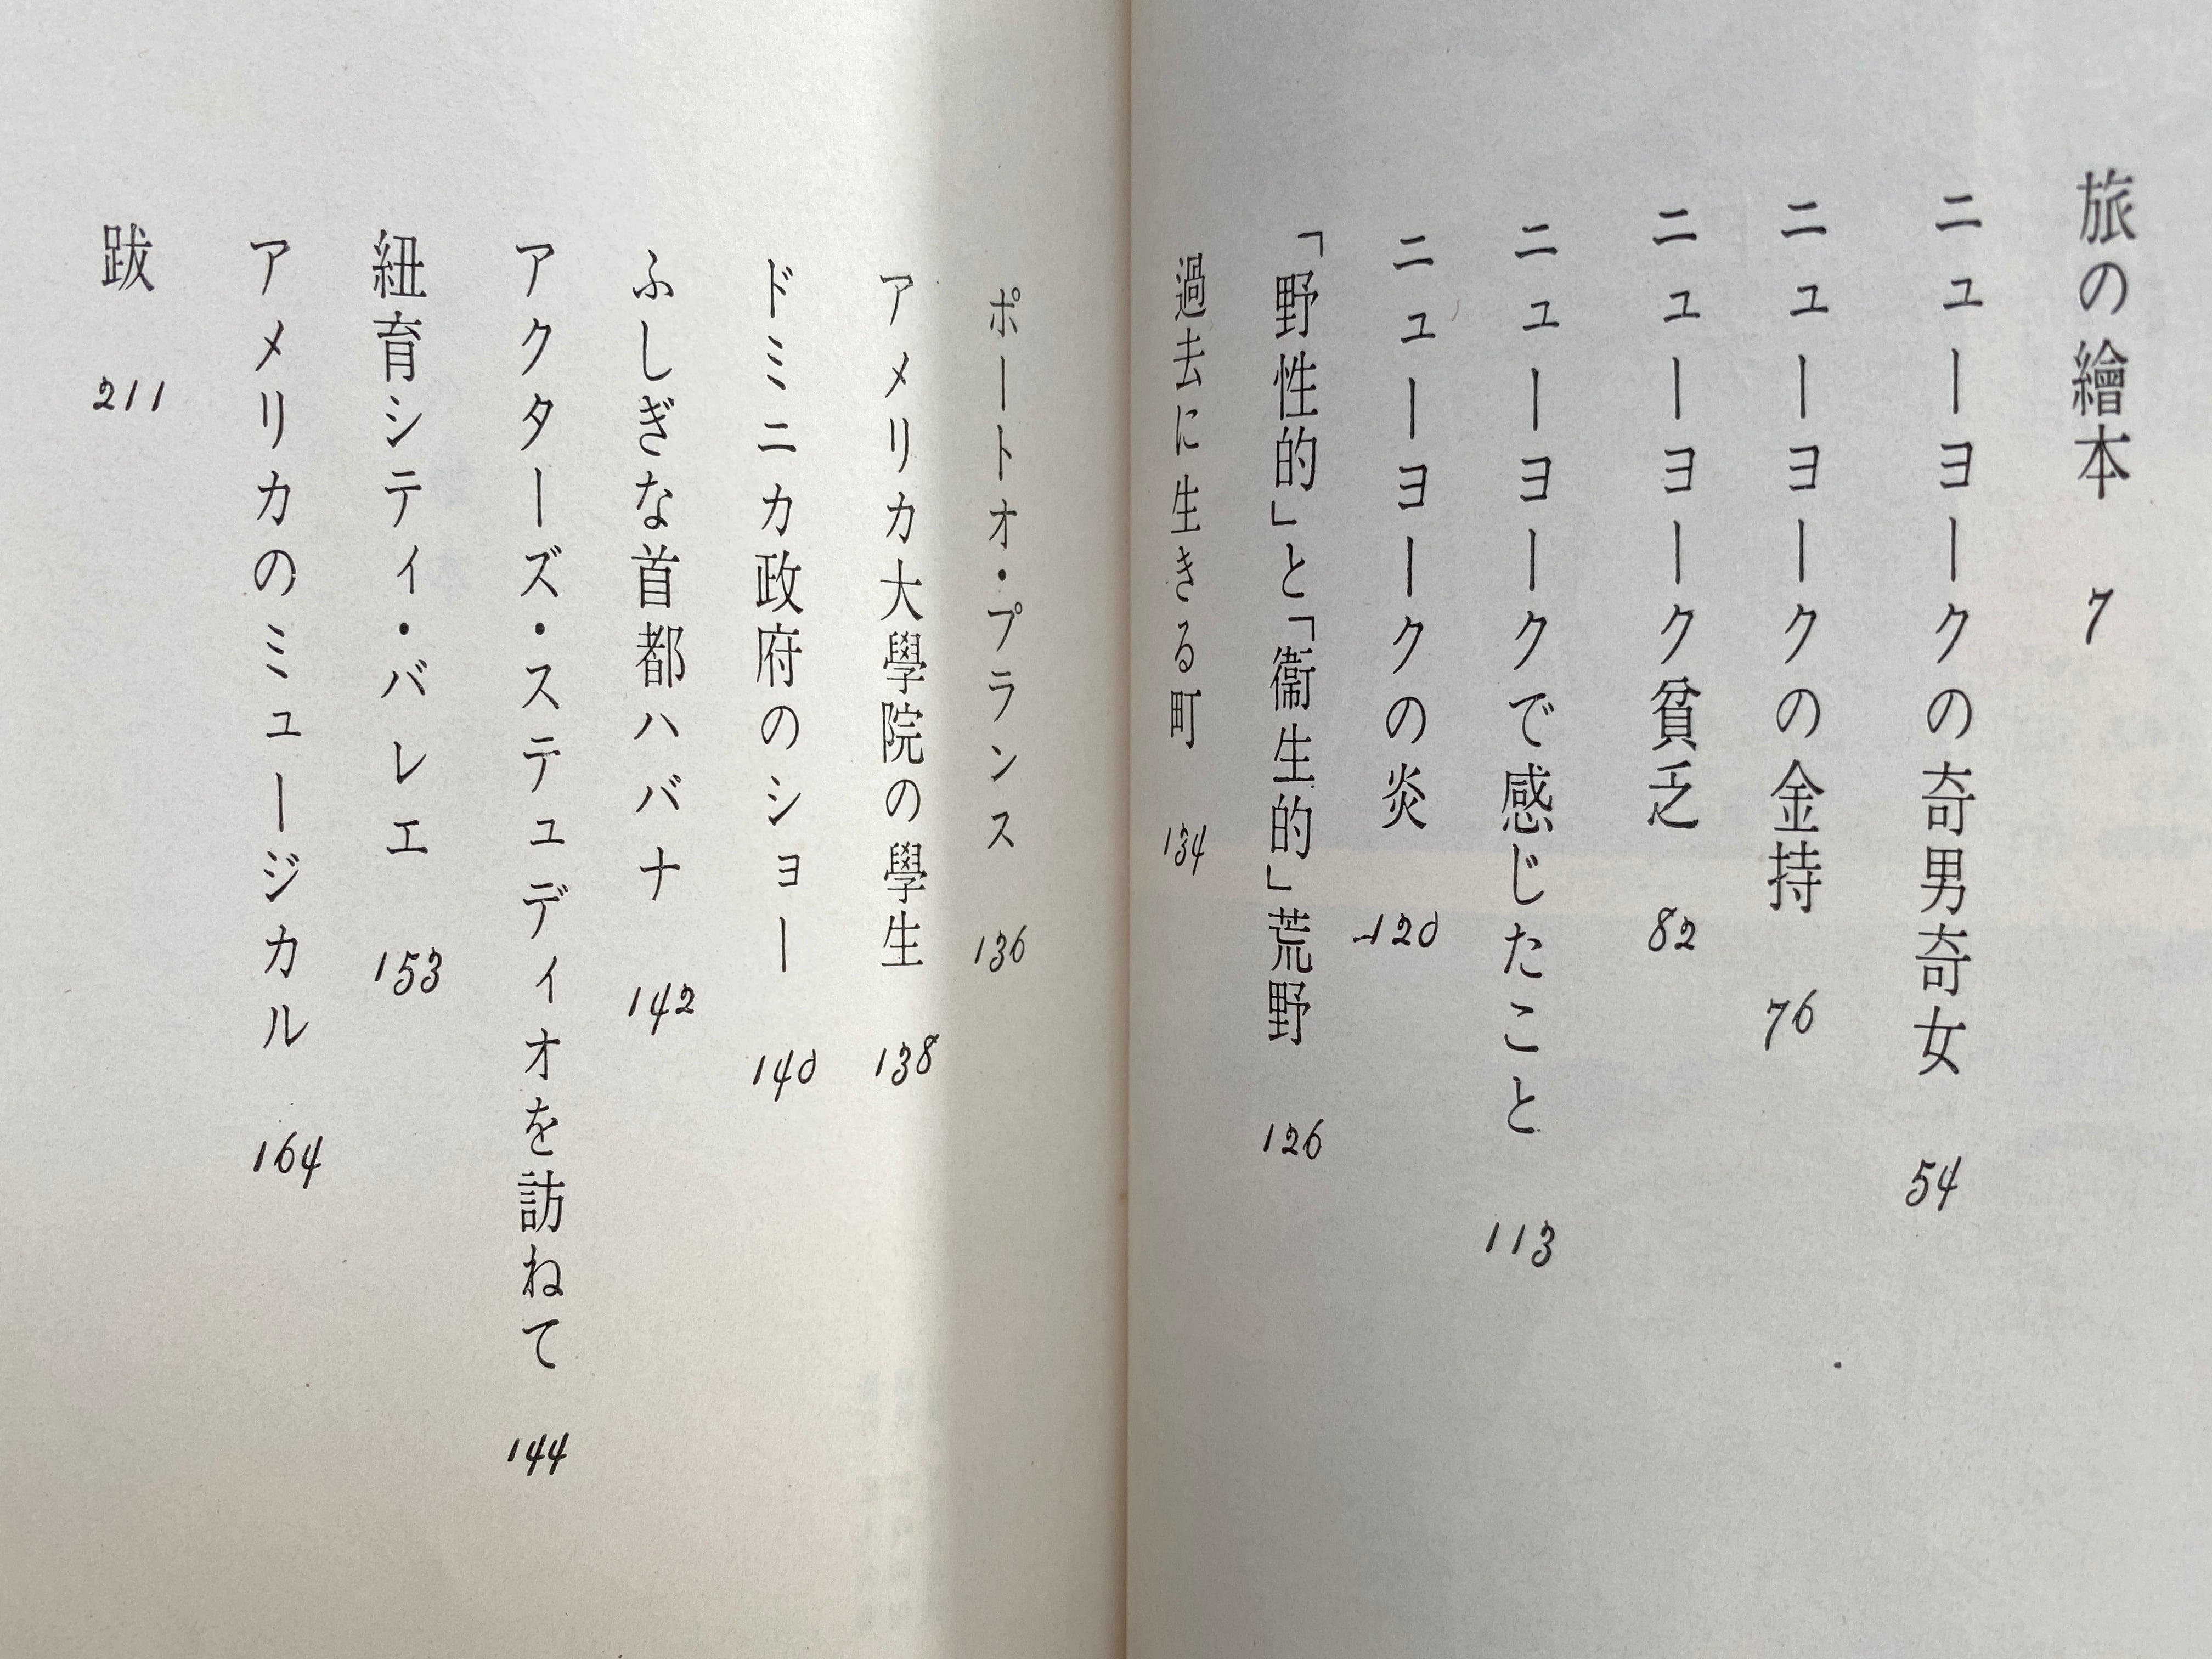 旅の繪本 7
ニューヨークの奇男奇女 54
ニューヨークの金持 76
ニューヨーク貧乏 82
ニューヨークで感じたこと 113
ニューヨークの炎 120
「野性的」と「衞生的」荒野 126
過去に生きる町 134
ポートオ・プランス 136
アメリカ大學院の學生 138
ドミニカ政府のショー 140
ふしぎな首都ハバナ 142
アクターズ・ステュディオを訪ねて 144
紐育シティ・バレエ 153
アメリカのミュージカル 164
跋 211